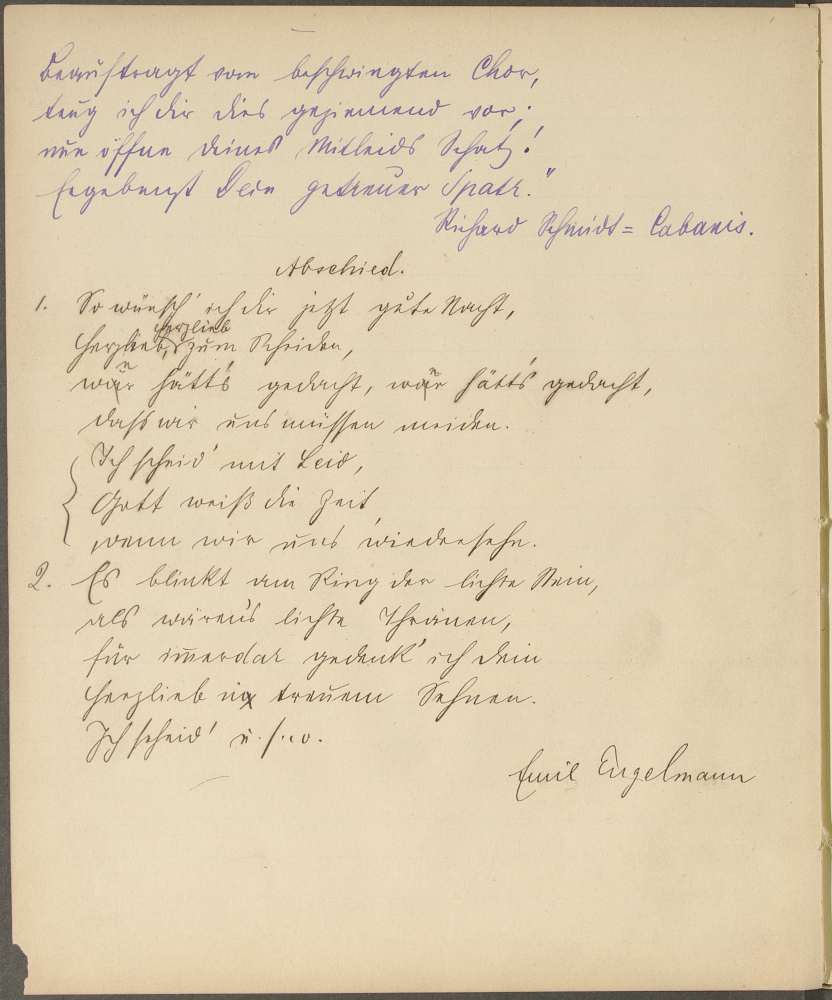 Beauftragt vom beschwingten Chor,
trug ich dir dies geziemend vor;
nun öffne deines Mitleids Schatz!
Ergebenst Dein getreuer Spatz."
Richard Schmidt=Cabanis.
Abschied.
1. So wünsch' ich dir jetzt gute Nacht,
herzlieb
Herzlieb, zum Scheiden,
wer hätt's gedacht, wer hätt's gedacht,
dass wir uns müssen meiden.
Ich scheid' mit Leid,
Gott weiß die Zeit,
wann wir uns wiedersehn.
2. Es blinkt am Ring der lichte Stein,
als wären's lichte Thränen,
für im̅erdar gedenk' ich dein
Herzlieb in treuem Sehnen.
Ich scheid' u.s.w.
Emil Engelmann